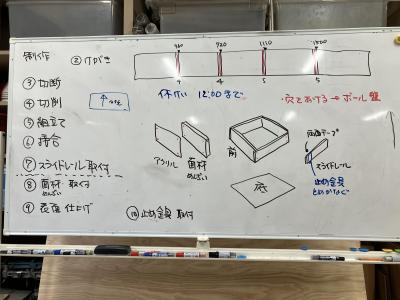 制作
② けがき
360 720 1110 1500
4 4 5 5
③ 切断
④ 切削
⑤ 組立て
⑥ 接合
⑦ スライドレール取付
⑧ 面材 取付
めんざい
⑨ 表面 仕上げ
⑩ 止め金具 取付
休けい 12:00まで
・穴をあける→ボール盤
アクリル
面材
めんざい
前
底
両面テープ
スライドレール
止め金具
とめかなぐ